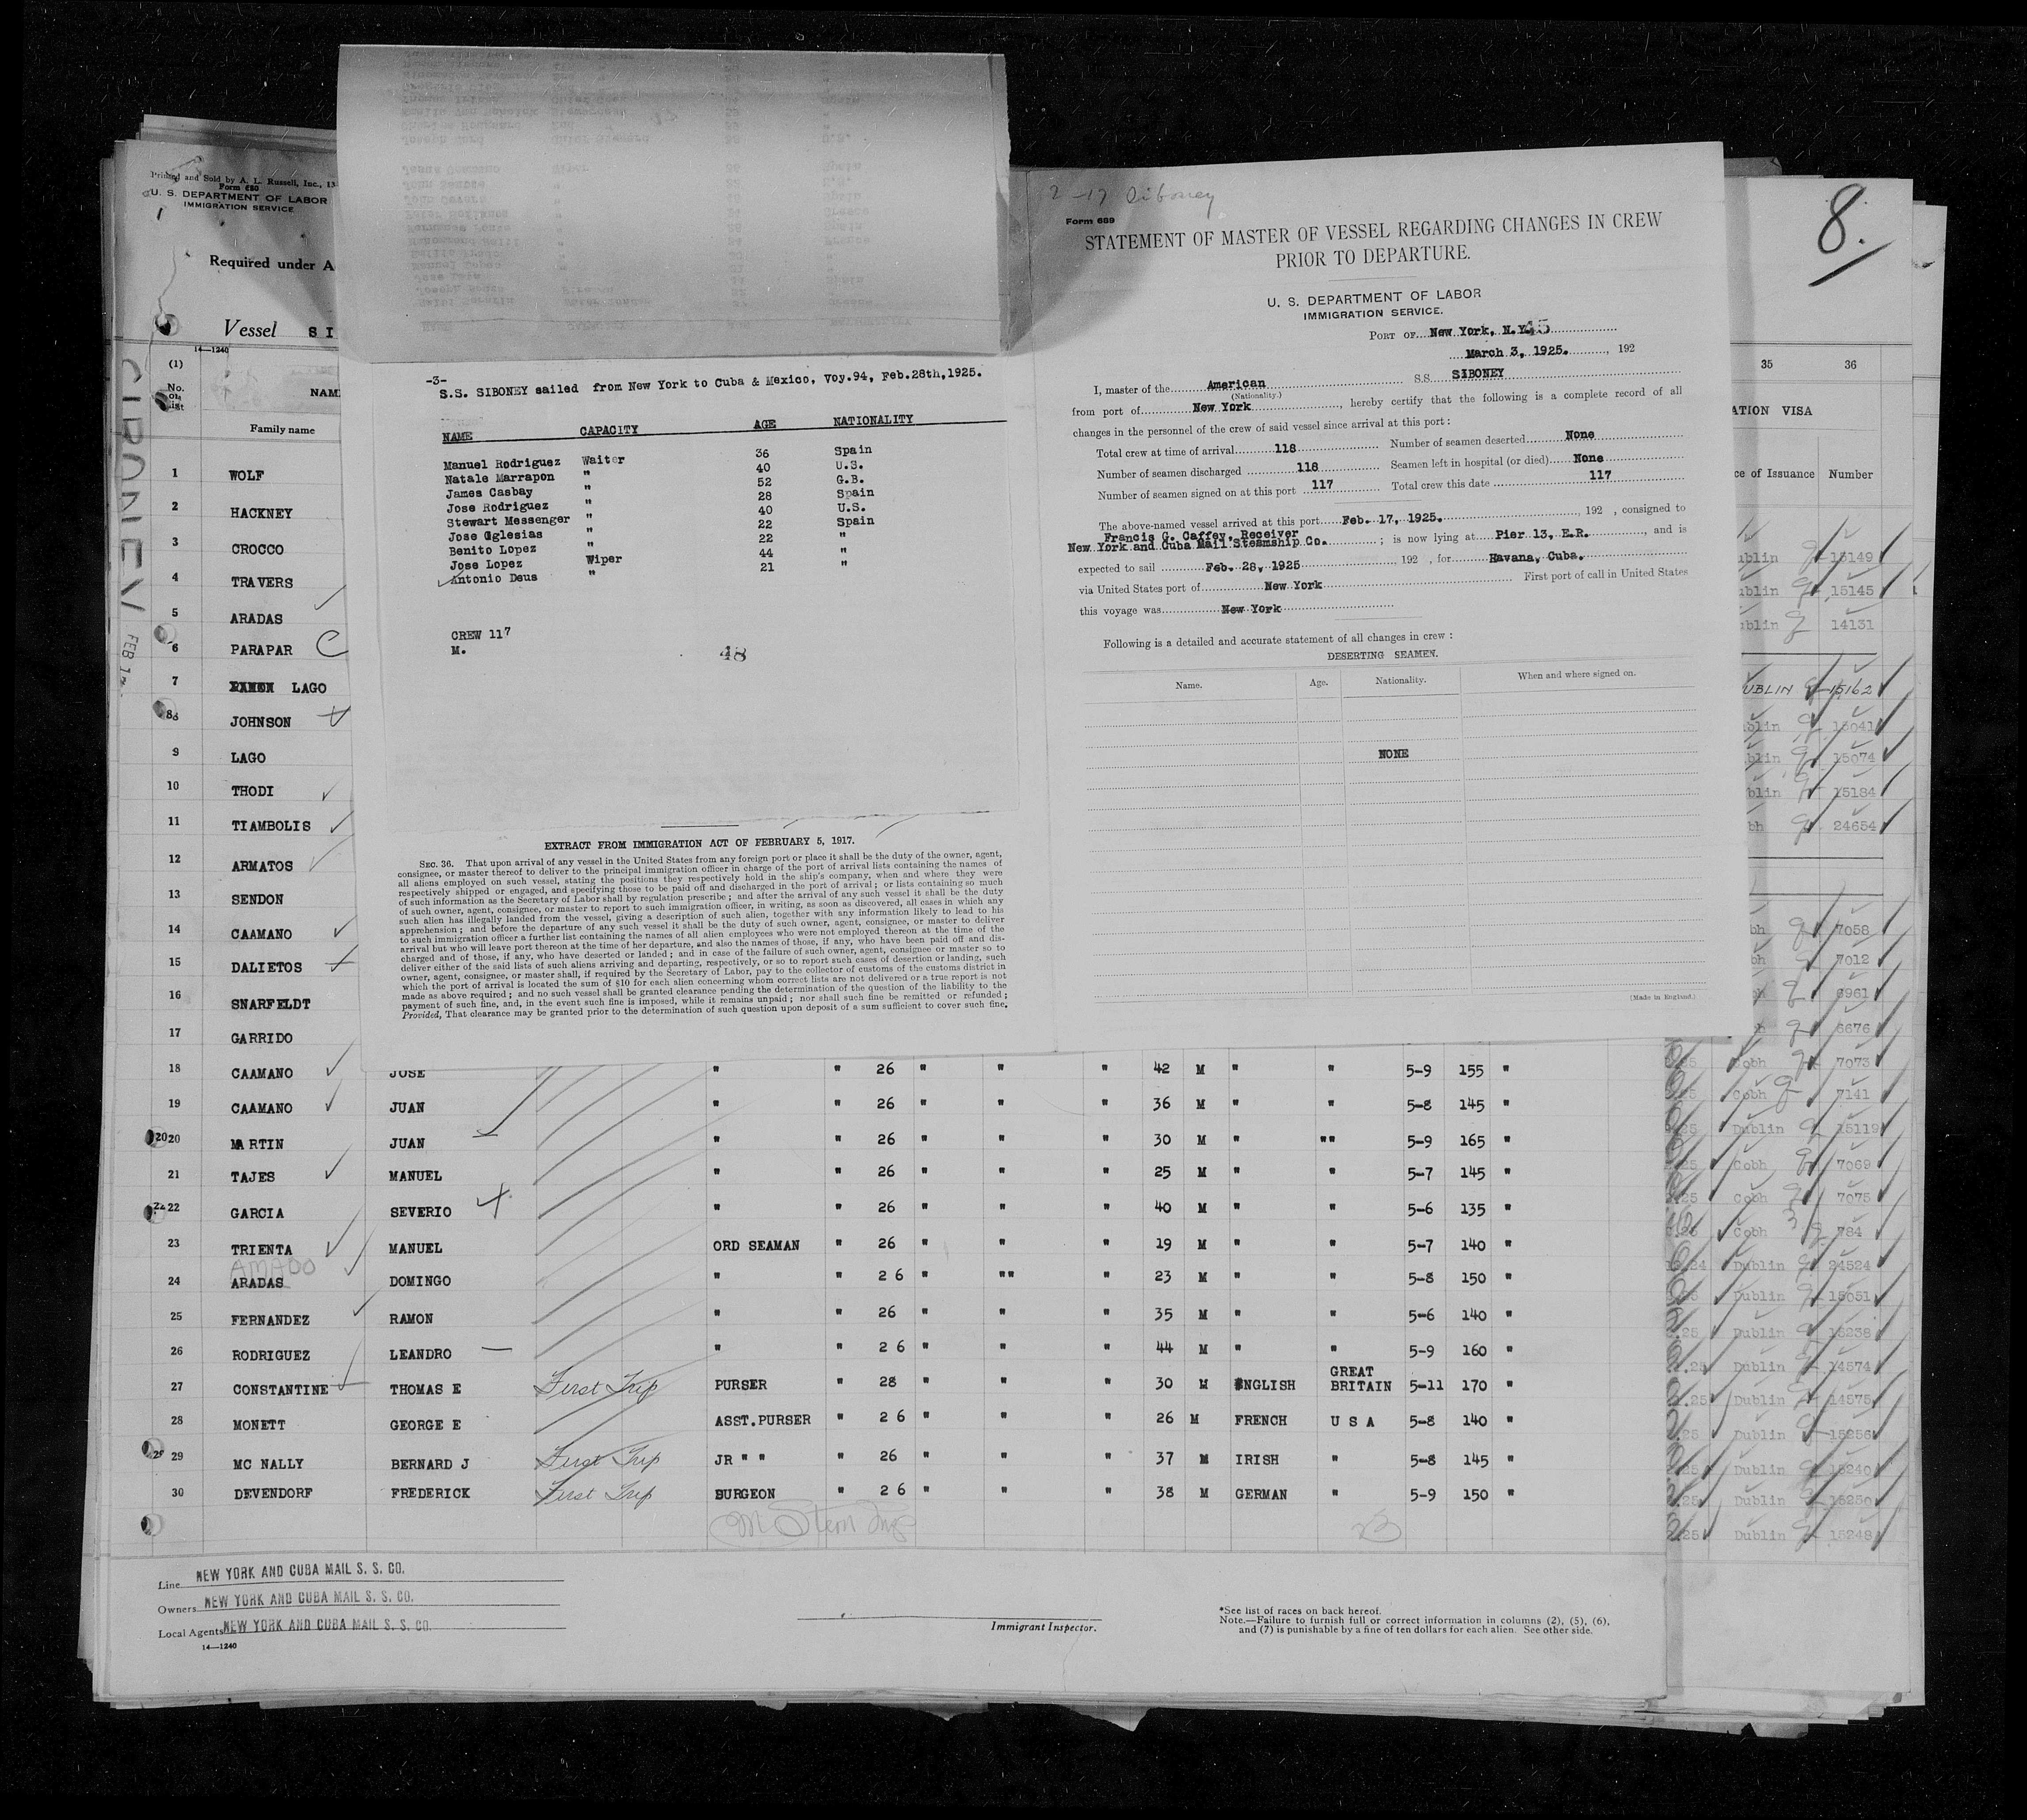 Printed and Sold by A. L. Russell, Inc., 13
Form 680
U. S. DEPARTMENT OF LABOR
IMMIGRATION SERVICE
Required under A
Vessel SI
14—1240
(1)
No. on list
NAM
Family name
1 WOLF
2 HACKNEY
3 CROCCO
4 TRAVERS
5 ARADAS
6 PARAPAR
7 LAGO
8 JOHNSON
9 LAGO
10 THODI
11 TIAMBOLIS
12 ARMATOS
13 SENDON
14 CAAMANO
15 DALIETOS
16 SNARFELDT
17 GARRIDO
SIBONEY FEB 17
-3-
S.S. SIBONEY sailed from New York to Cuba & Mexico, Voy.94, Feb.28th,1925.
NAME CAPACITY AGE NATIONALITY
Manuel Rodriguez Waiter 36 Spain
Natale Marrapon " 40 U.S.
James Casbay " 52 G.B.
Jose Rodriguez " 28 Spain
Stewart Messenger " 40 U.S.
Jose Oglesias " 22 Spain
Benito Lopez " 22 "
Jose Lopez Wiper 44 "
Antonio Deus " 21 "
CREW 117
M.
48
EXTRACT FROM IMMIGRATION ACT OF FEBRUARY 5, 1917.
SEC. 36. That upon arrival of any vessel in the United States from any foreign port or place it shall be the duty of the owner, agent,
consignee, or master thereof to deliver to the principal immigration officer in charge of the port of arrival lists containing the names of
all aliens employed on such vessel, stating the positions they respectively hold in the ship's company, when and where they were
respectively shipped or engaged, and specifying those to be paid off and discharged in the port of arrival; or lists containing so much
of such information as the Secretary of Labor shall by regulation prescribe; and after the arrival of any such vessel it shall be the duty
of such owner, agent, consignee, or master to report to such immigration officer, in writing, as soon as discovered, all cases in which any
such alien has illegally landed from the vessel, giving a description of such alien, together with any information likely to lead to his
apprehension; and before the departure of any such vessel it shall be the duty of such owner, agent, consignee, or master to deliver
to such immigration officer a further list containing the names of all alien employees who were not employed thereon at the time of the
arrival but who will leave port thereon at the time of her departure, and also the names of those, if any, who have been paid off and dis-
charged and of those, if any, who have deserted or landed; and in case of the failure of such owner, agent, consignee or master so to
deliver either of the said lists of such aliens arriving and departing, respectively, or so to report such cases of desertion or landing, such
owner, agent, consignee, or master shall, if required by the Secretary of Labor, pay to the collector of customs of the customs district in
which the port of arrival is located the sum of $10 for each alien concerning whom correct lists are not delivered or a true report is not
made as above required; and no such vessel shall be granted clearance pending the determination of the question of the liability to the
payment of such fine, and, in the event such fine is imposed, while it remains unpaid; nor shall such fine be remitted or refunded;
Provided, That clearance may be granted prior to the determination of such question upon deposit of a sum sufficient to cover such fine.
2-17 Siboney
Form 689
STATEMENT OF MASTER OF VESSEL REGARDING CHANGES IN CREW
PRIOR TO DEPARTURE.
U. S. DEPARTMENT OF LABOR
IMMIGRATION SERVICE.
PORT OF New York, N.Y. 45
March 3, 1925. , 192
I, master of the American S.S. SIBONEY
(Nationality.)
from port of New York, hereby certify that the following is a complete record of all
changes in the personnel of the crew of said vessel since arrival at this port:
Total crew at time of arrival 118 Number of seamen deserted None
Number of seamen discharged 118 Seamen left in hospital (or died) None
Number of seamen signed on at this port 117 Total crew this date 117
The above-named vessel arrived at this port Feb. 17, 1925. , 192 , consigned to
Francis G. Caffey, Receiver
New York and Cuba Mail Steamship Co. ; is now lying at Pier 13, E.R. , and is
expected to sail Feb. 28, 1925 , 192 , for Havana, Cuba.
via United States port of New York First port of call in United States
this voyage was New York
Following is a detailed and accurate statement of all changes in crew:
DESERTING SEAMEN.
Name. Age. Nationality. When and where signed on.
NONE
[Made in England.]
8.
35 36
ATION VISA
ce of Issuance Number
ublin 15149
ublin 15145
ublin 14131
UBLIN 15162
blin 15041
blin 15074
blin 15184
bh 24654
bh 7058
bh 7012
6961
6676
Cobh 7073
Cobh 7141
Dublin 15119
Cobh 7069
Cobh 7075
Cobh 784
Dublin 24524
Dublin 15051
Dublin 15238
Dublin 14574
Dublin 14575
Dublin 15256
Dublin 15240
Dublin 15250
Dublin 15248
18 CAAMANO JOSE " " 26 " " " 42 M " " 5-9 155 "
19 CAAMANO JUAN " " 26 " " " 36 M " " 5-8 145 "
20 MARTIN JUAN " " 26 " " " 30 M " "" 5-9 165 "
21 TAJES MANUEL " " 26 " " " 25 M " " 5-7 145 "
22 GARCIA SEVERIO " " 26 " " " 40 M " " 5-6 135 "
23 TRIENTA MANUEL ORD SEAMAN " 26 " " " 19 M " " 5-7 140 "
AMADO
24 ARADAS DOMINGO " " 26 " "" " 23 M " " 5-8 150 "
25 FERNANDEZ RAMON " " 26 " " " 35 M " " 5-6 140 "
26 RODRIGUEZ LEANDRO " " 26 " " " 44 M " " 5-9 160 "
27 CONSTANTINE THOMAS E First Trip PURSER " 28 " " " 30 M ENGLISH GREAT BRITAIN 5-11 170 "
28 MONETT GEORGE E ASST.PURSER " 26 " " 26 M FRENCH U S A 5-8 140 "
29 MC NALLY BERNARD J First Trip JR " " " 26 " " " 37 M IRISH " 5-8 145 "
30 DEVENDORF FREDERICK First Trip BURGEON " 26 " " " 38 M GERMAN " 5-9 150 "
Line NEW YORK AND CUBA MAIL S. S. CO.
Owners NEW YORK AND CUBA MAIL S. S. CO.
Local Agents NEW YORK AND CUBA MAIL S. S. CO.
14—1240
Immigrant Inspector.
*See list of races on back hereof.
Note.—Failure to furnish full or correct information in columns (2), (5), (6),
and (7) is punishable by a fine of ten dollars for each alien. See other side.